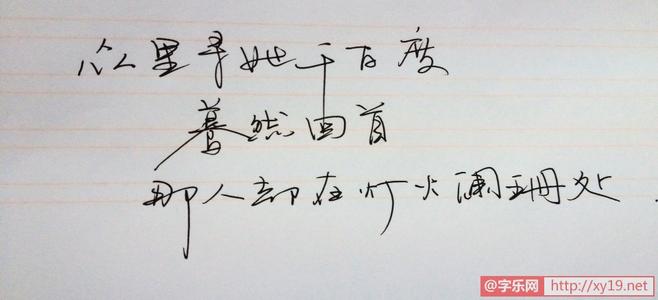 众里寻她千百度
暮然回首
那人却在灯火阑珊处.
@字乐网 http://xy19.net